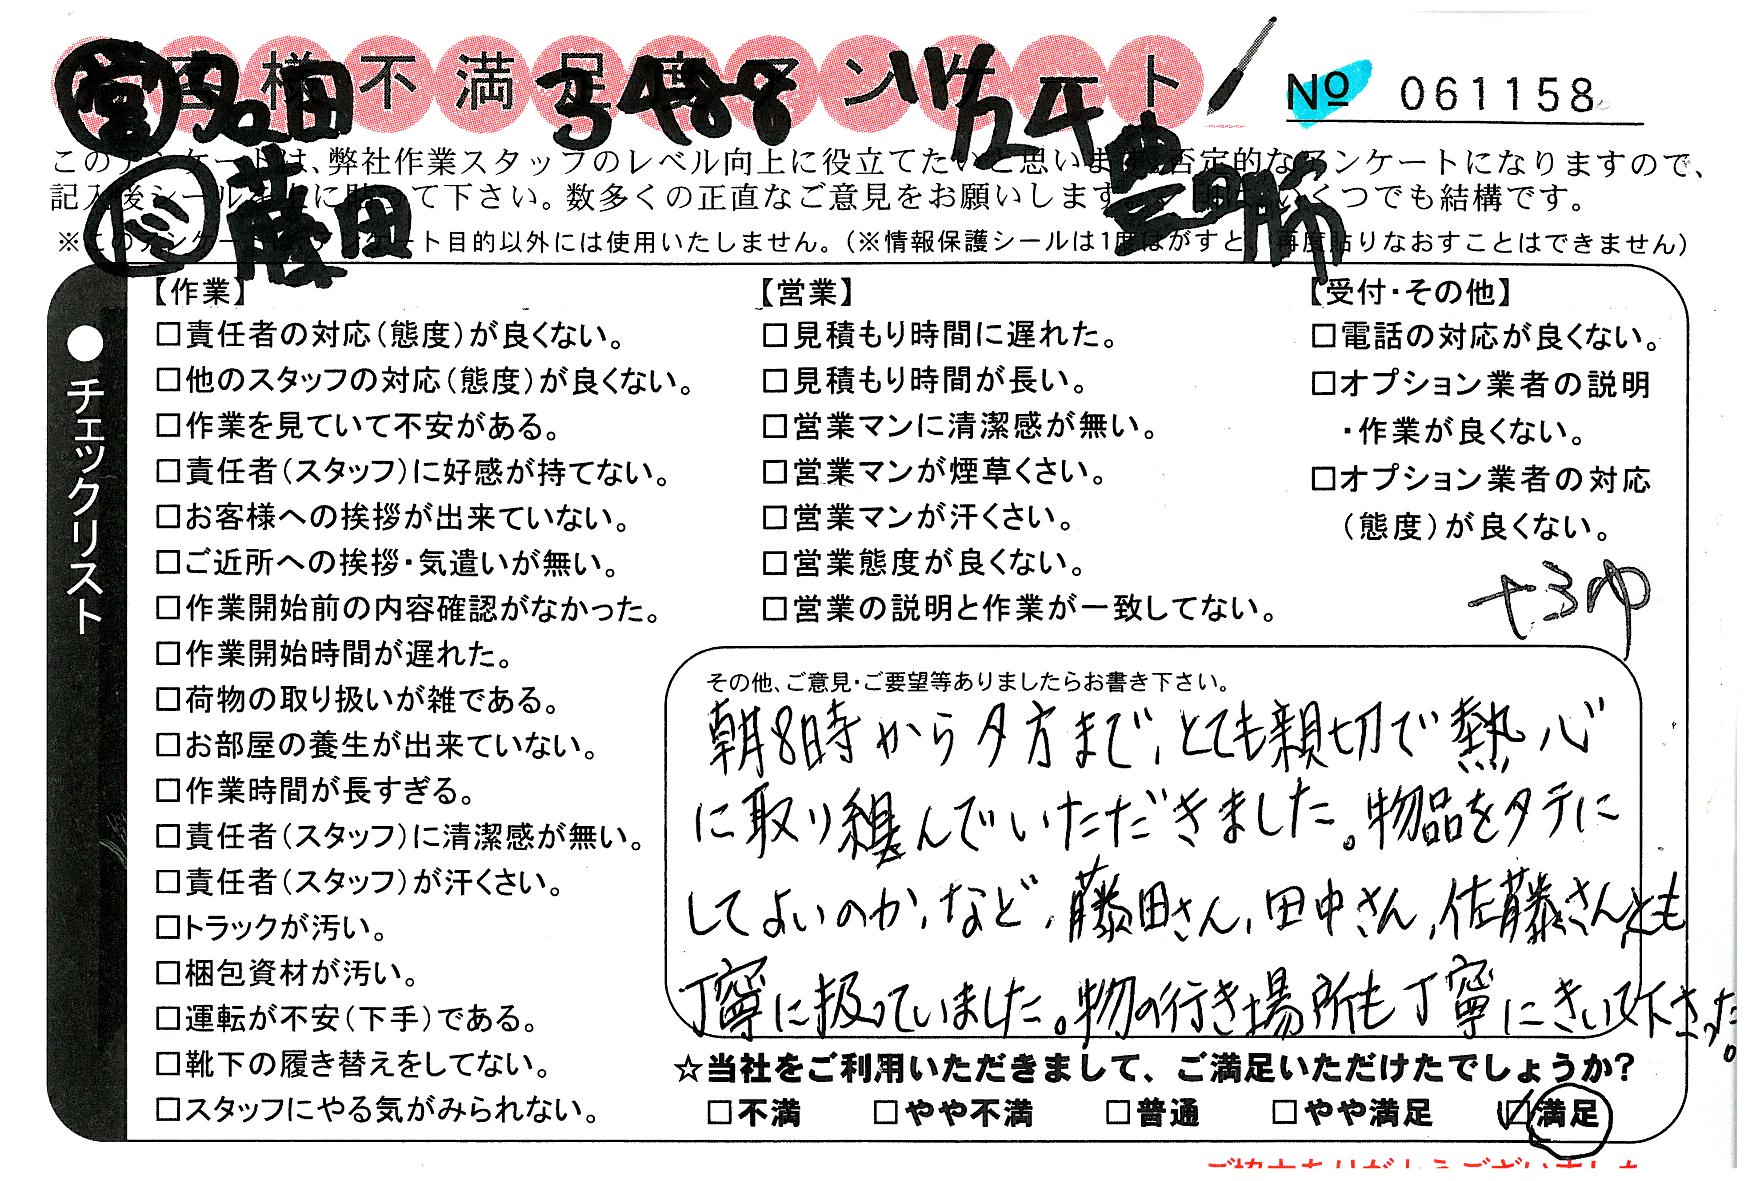 お客様不満足度アンケート
No 061158
営 多田 3488 11/24
このアンケートは、弊社作業スタッフのレベル向上に役立てたいと思います。否定的なアンケートになりますので、
記入後シールを上に貼って下さい。数多くの正直なご意見をお願いします。
いくつでも結構です。
ド 藤田
※このアンケートは、アンケート目的以外には使用いたしません。(※情報保護シールは1度はがすと、再度貼りなおすことはできません)
●チェックリスト
【作業】
□責任者の対応(態度)が良くない。
□他のスタッフの対応(態度)が良くない。
□作業を見ていて不安がある。
□責任者(スタッフ)に好感が持てない。
□お客様への挨拶が出来ていない。
□ご近所への挨拶・気遣いが無い。
□作業開始前の内容確認がなかった。
□作業開始時間が遅れた。
□荷物の取り扱いが雑である。
□お部屋の養生が出来ていない。
□作業時間が長すぎる。
□責任者(スタッフ)に清潔感が無い。
□責任者(スタッフ)が汗くさい。
□トラックが汚い。
□梱包資材が汚い。
□運転が不安(下手)である。
□靴下の履き替えをしてない。
□スタッフにやる気がみられない。
【営業】
□見積もり時間に遅れた。
□見積もり時間が長い。
□営業マンに清潔感が無い。
□営業マンが煙草くさい。
□営業マンが汗くさい。
□営業態度が良くない。
□営業の説明と作業が一致してない。
【受付・その他】
□電話の対応が良くない。
□オプション業者の説明
・作業が良くない。
□オプション業者の対応
(態度)が良くない。
その他、ご意見・ご要望等ありましたらお書き下さい。
朝8時から夕方まで、とても親切で熱心
に取り組んでいただきました。物品をタテに
してよいのか、など、藤田さん、田中さん、佐藤さんとも
丁寧に扱っていました。物の行き場所も丁寧にきいて下さった。
☆当社をご利用いただきまして、ご満足いただけたでしょうか?
□不満 □やや不満 □普通 □やや満足 ☑満足
ご協力ありがとうございました